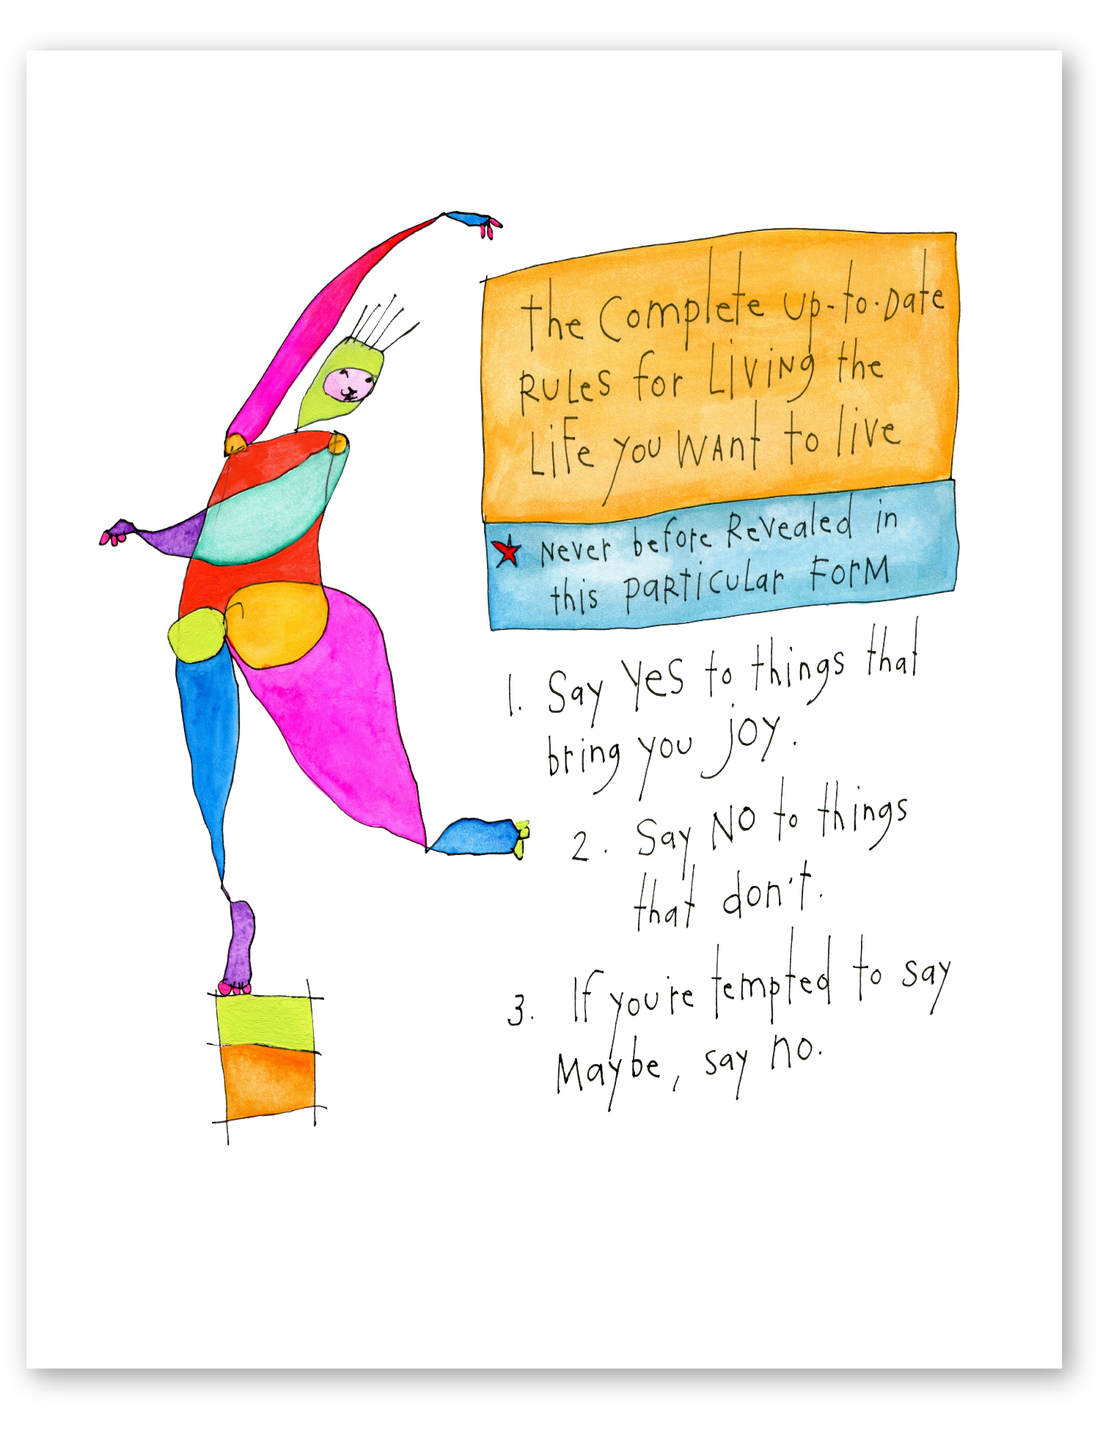 the Complete up-to-Date
RULes for LiViNg the
LiFe you WANt to live
Never before ReVealed in
this pARTiCuLar ForM
1. Say YeS to things that
bring you joy.
2. Say NO to things
that don't.
3. If you're tempted to say
Maybe, say no.